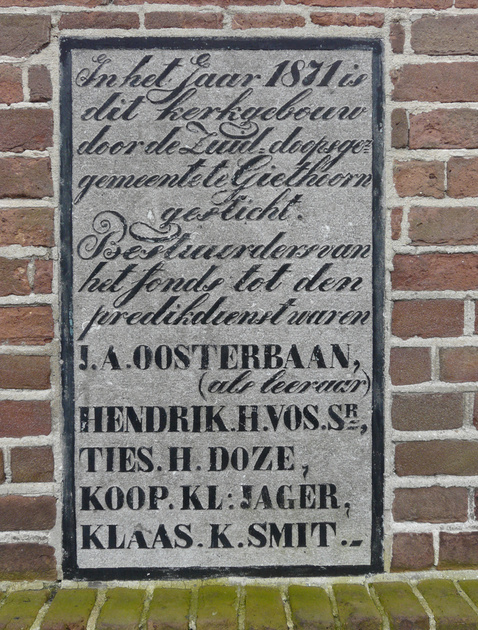 In het Jaar 1871 is
dit kerkgebouw
door de Zuid-doopsge-
gemeente te Giethoorn
gesticht.
Bestuurders van
het fonds tot den
predikdienst waren
J.A.OOSTERBAAN,
(als leeraar)
HENDRIK.H.VOS.SR,
TIES.H.DOZE,
KOOP.KL:JAGER,
KLAAS.K.SMIT.-